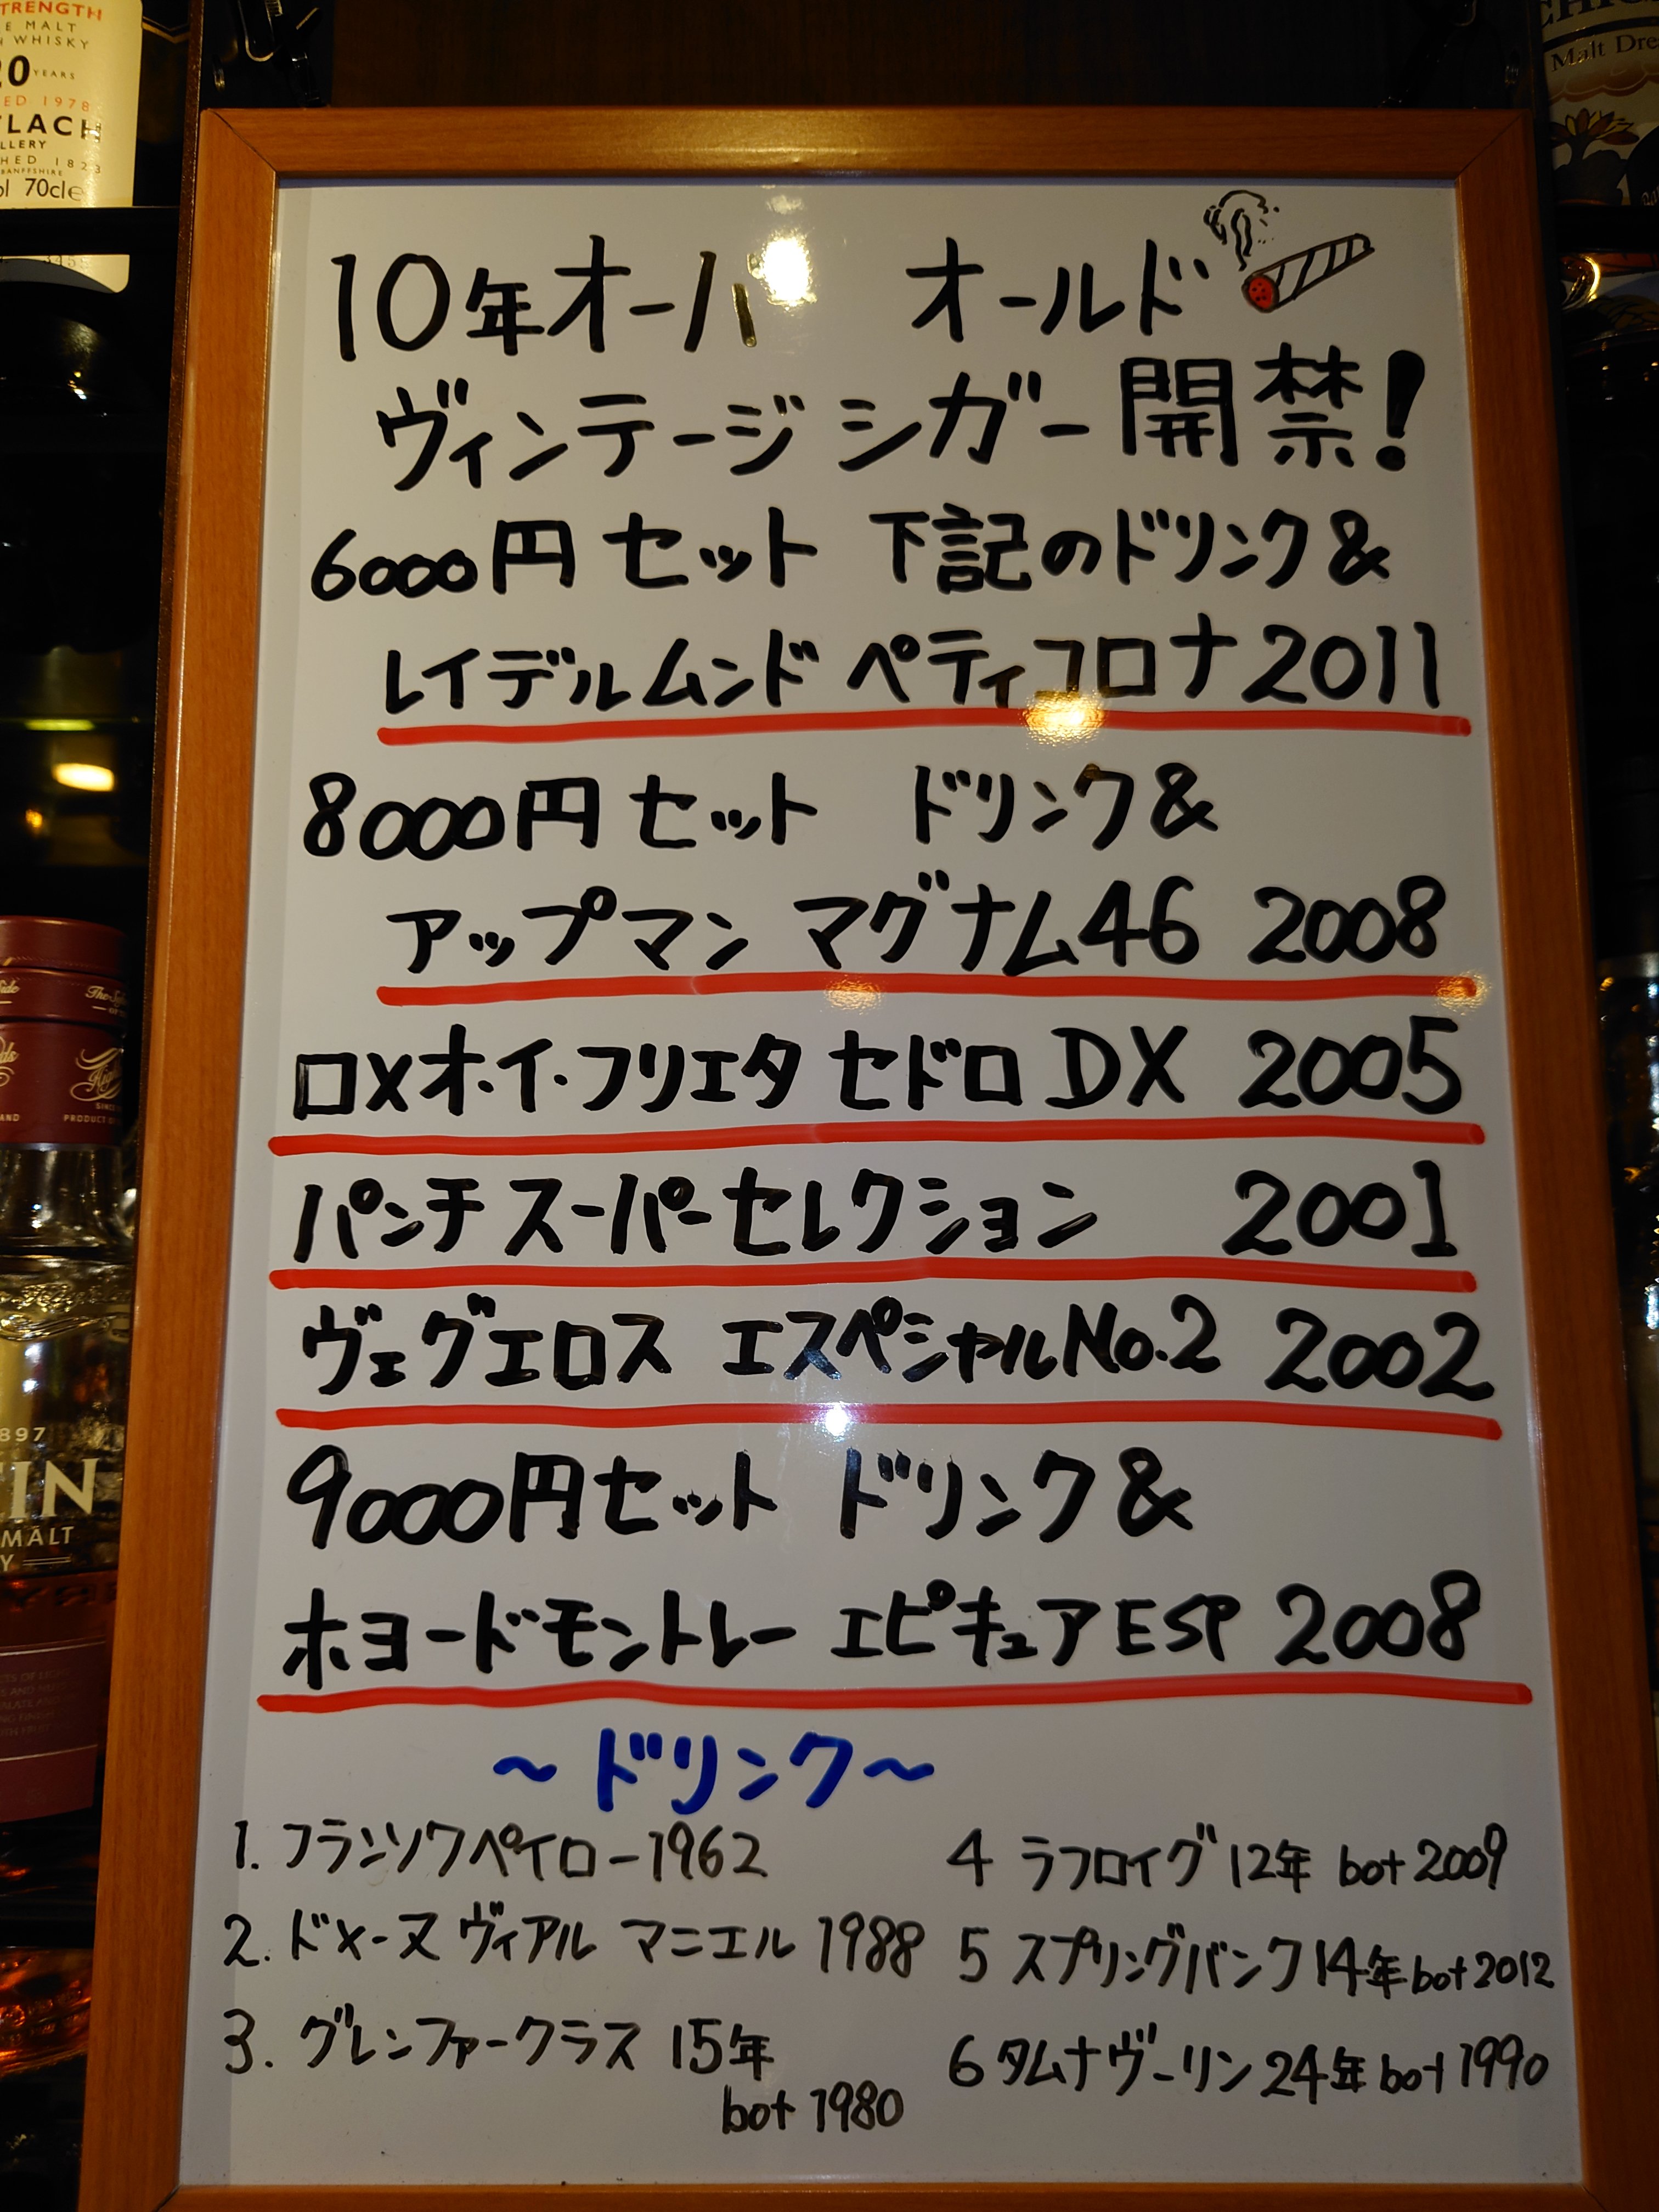 TRENGTH
E MALT
WHISKY
20 YEARS
ED 1978
TLACH
LLERY
HED 1823
BANFFSHIRE
ol 70cl e
Malt Dre
10年オーバ オールド
ヴィンテージ シガー開禁!
6000円セット 下記のドリンク&
レイデルムンド ペティコロナ2011
8000円セット ドリンク&
アップマン マグナム46 2008
ロメオ・イ・フリエタ セドロ DX 2005
パンチ スーパーセレクション 2001
ヴェグエロス エスペシャルNo.2 2002
9000円セット ドリンク&
ホヨードモントレー エピキュアESP 2008
〜ドリンク〜
1. フランソワペイロー1962
2. ドメーヌ ヴィアル マニエル 1988
3. グレンファークラス 15年
bot 1980
4 ラフロイグ 12年 bot 2009
5 スプリングバンク 14年 bot 2012
6 タムナヴーリン 24年 bot 1990
897
EIN
MALT